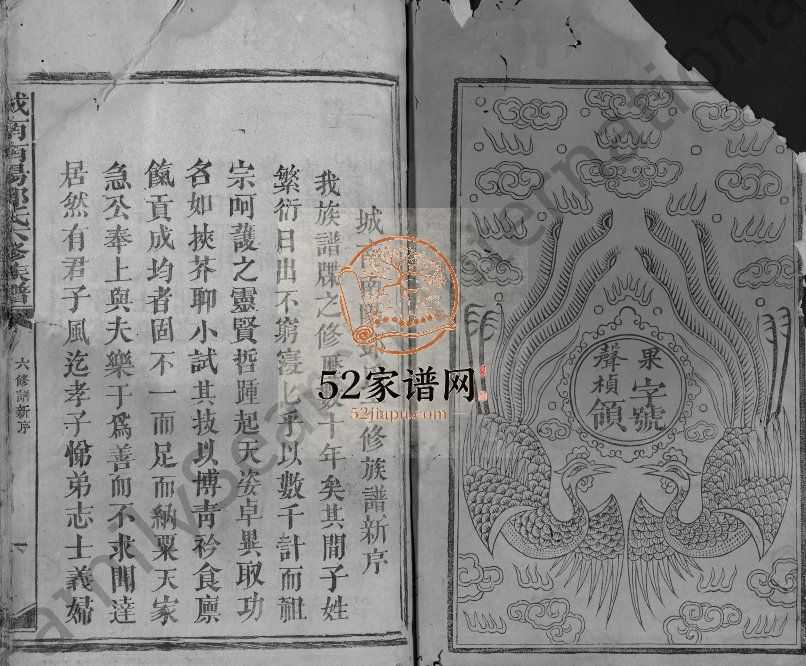 果字號
聲楨領
城南南陽鄧氏六修族譜新序
我族譜牒之修歷數十年矣其間子姓
繁衍日出不窮寖七乎以數千計而祖
宗呵護之靈賢哲踵起天姿卓異取功
名如挾芥聊小試其技以博青衿食廩
餼貢成均者固不一而足而納粟天家
急公奉上與夫樂于爲善而不求聞達
居然有君子風迄孝子悌弟志士義婦
南陽鄧氏六修族譜
六修譜新序
一
52家谱网
52jiapu.com